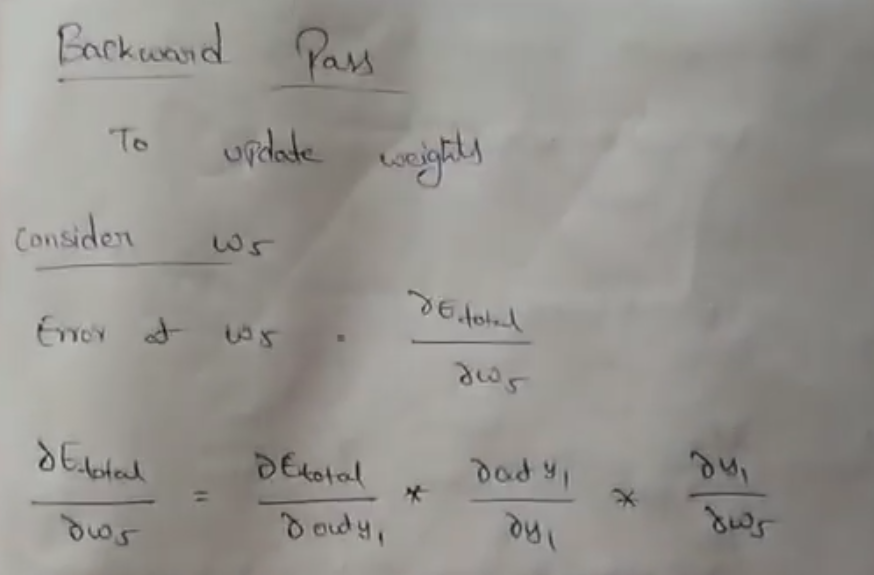 Backward Pass
To update weights
Consider w5
Error at w5 = ∂Etotal / ∂w5
∂Etotal / ∂w5 = ∂Etotal / ∂outy1 * ∂outy1 / ∂y1 * ∂y1 / ∂w5